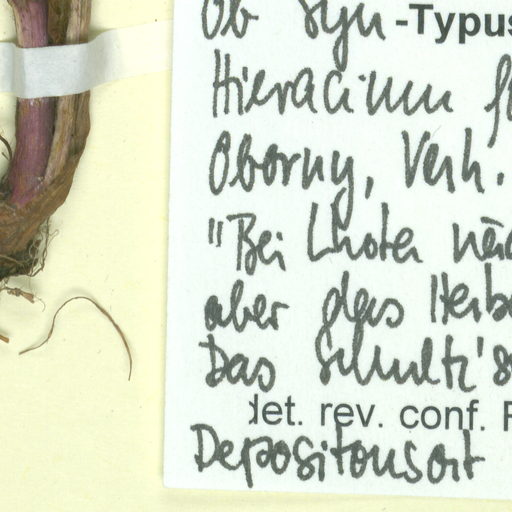 Ob Syn-Typus
Hieracium
Oborny, Verh.
"Bei Lhota
aber das
Das Schultz's
det. rev. conf.
Depositionsort